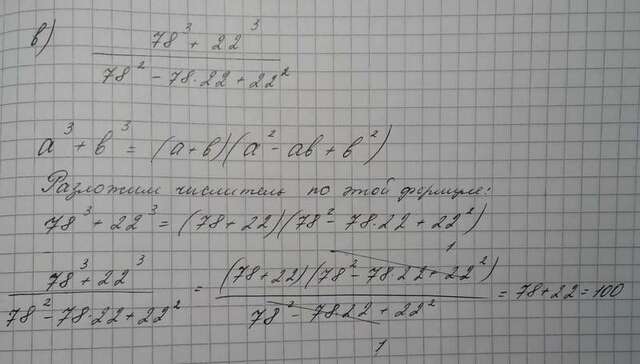 в) (78³ + 22³)/(78² − 78·22 + 22²)
a³ + в³ = (a+в)(a² − aв + в²)
Разложим числитель по этой формуле:
78³ + 22³ = (78 + 22)(78² − 78·22 + 22²)
(78³ + 22³)/(78² − 78·22 + 22²) = ((78+22)(78² − 78·22 + 22²)¹)/(78² − 78·22 + 22²)₁ = 78+22 = 100